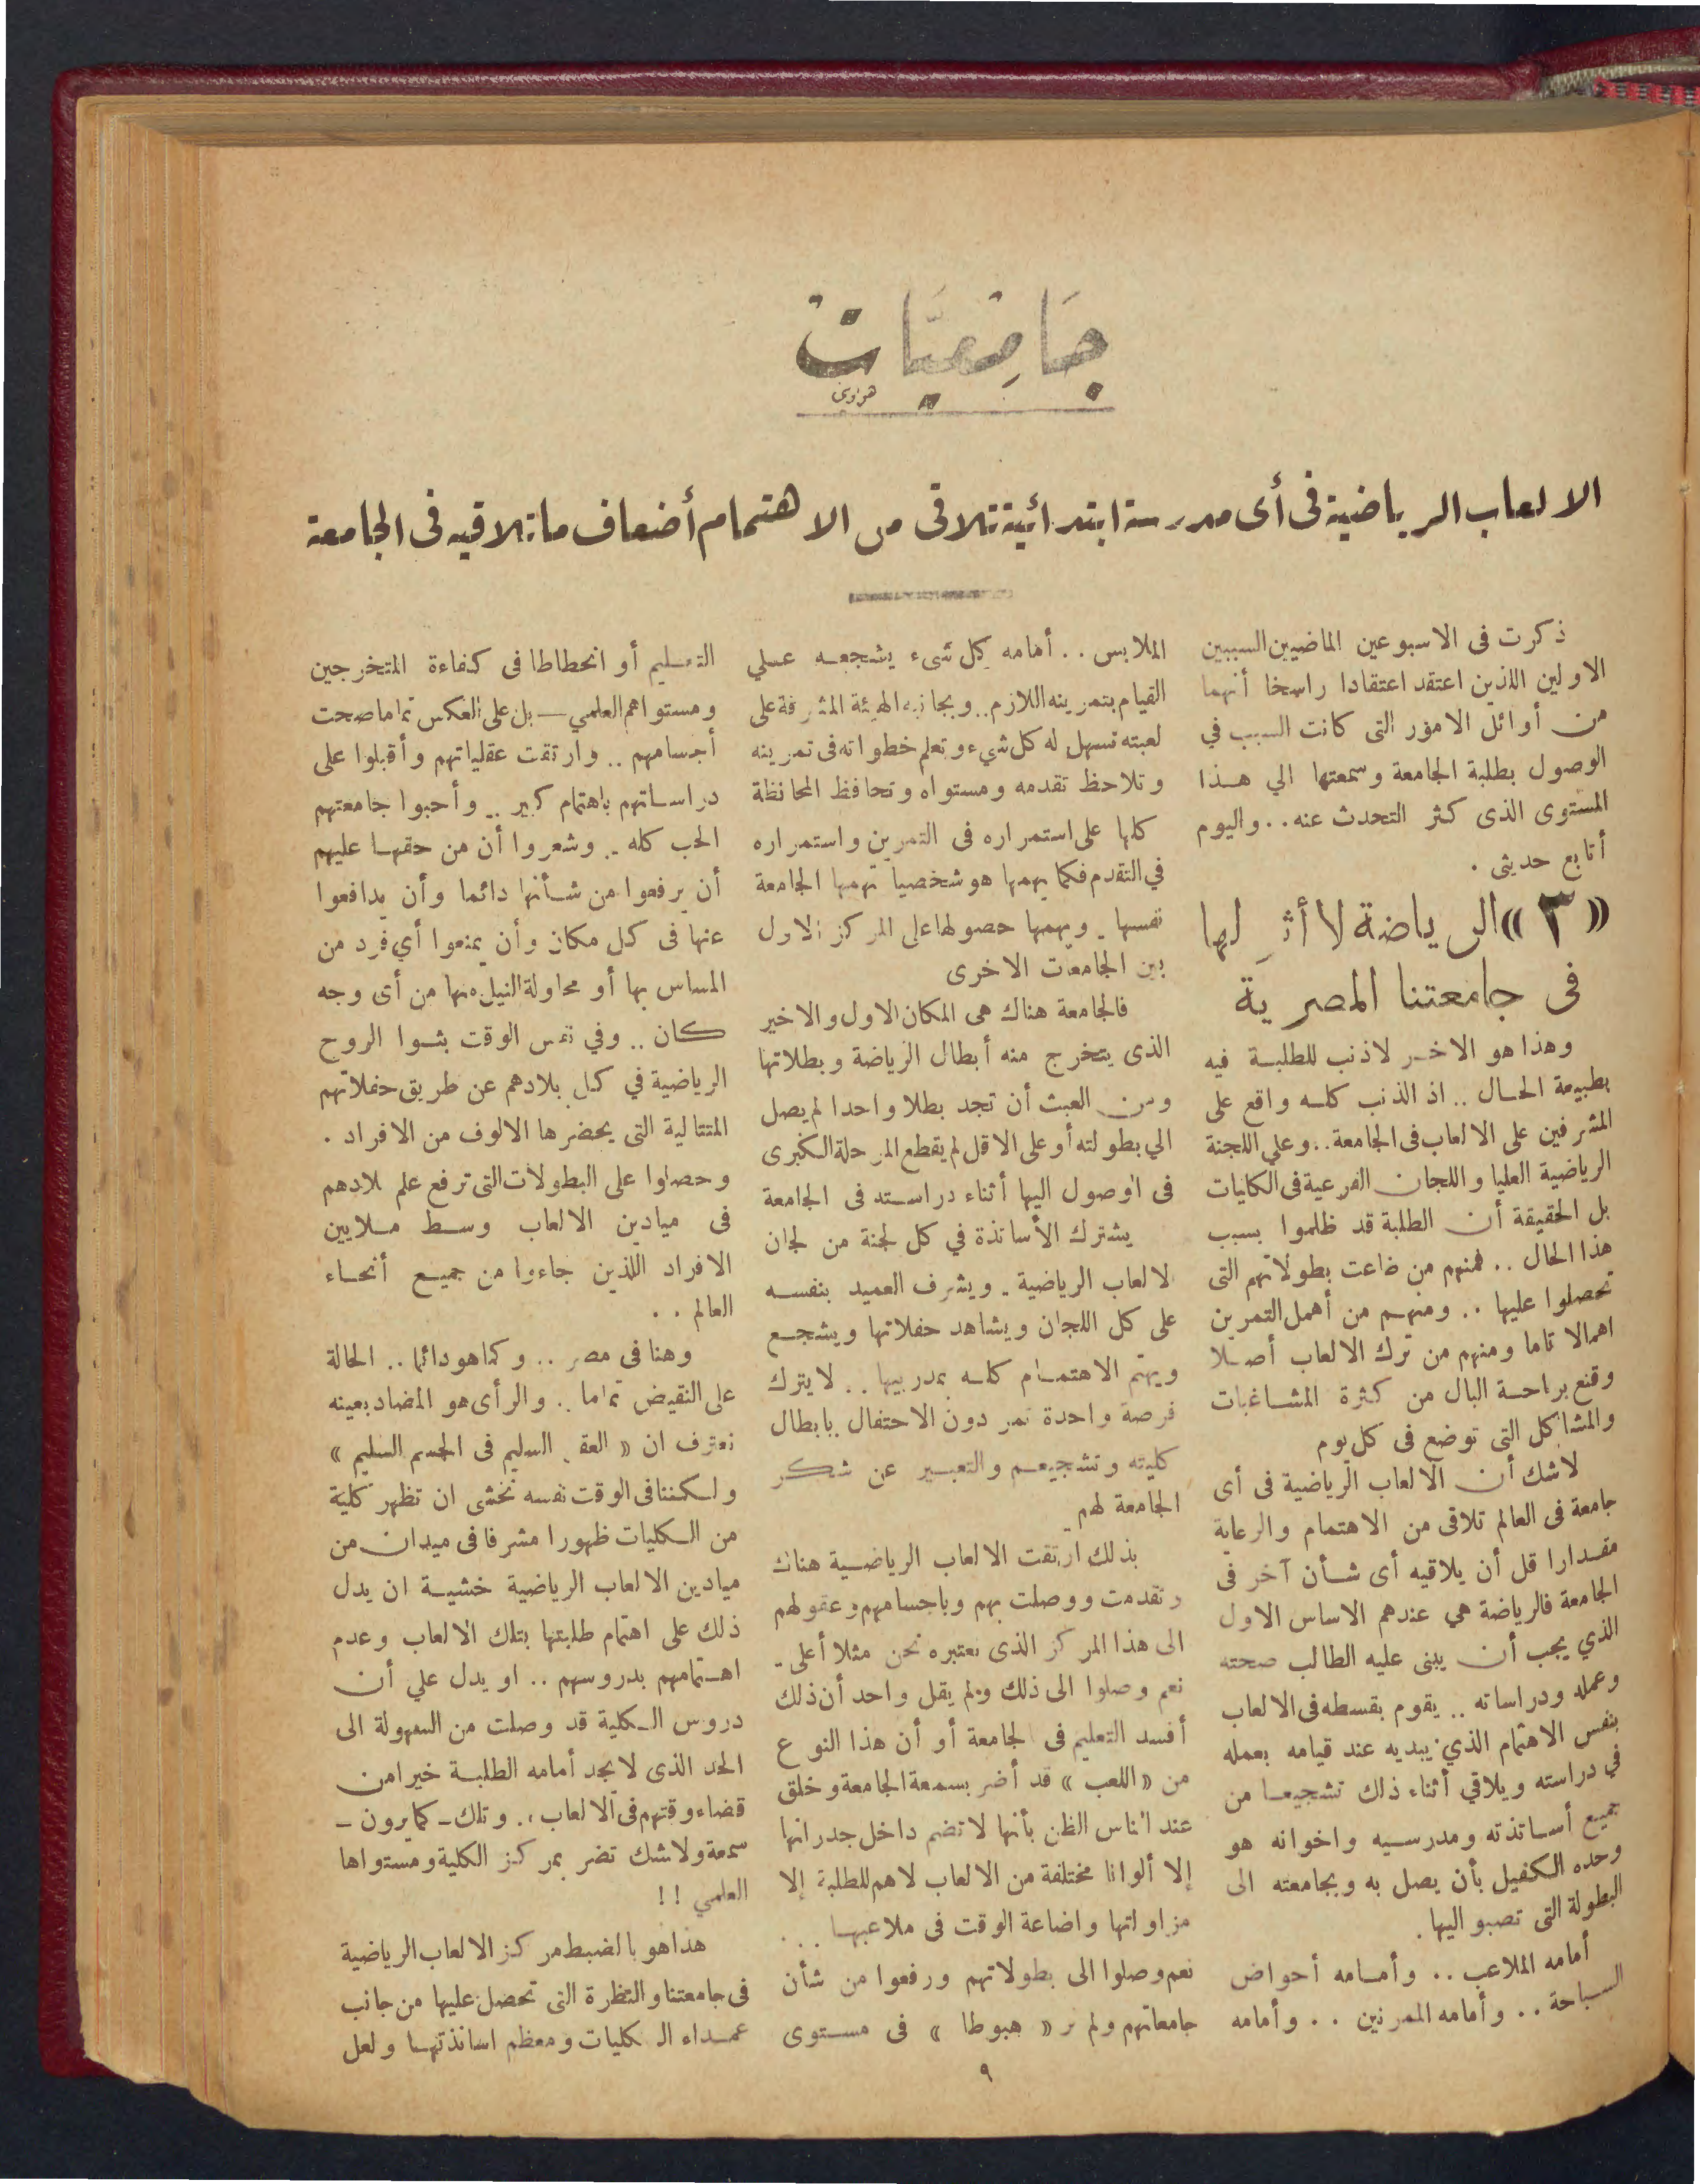 جَامِعيَّات
الالعاب الرياضية فى أى مدرسة ابتدائية تلاقى من الاهتمام أضعاف ما تلاقيه فى الجامعة
ذكرت فى الاسبوعين الماضيين السببين
الاولين اللذين اعتقد اعتقادا راسخا أنهما
من أوائل الامور التى كانت السبب في
الوصول بطلبة الجامعة وسمعتها الي هذا
المستوى الذى كثر التحدث عنه . . واليوم
أتابع حديثى .
« ٣ » الرياضة لا أثر لها
فى جامعتنا المصرية
وهذا هو الاخر لا ذنب للطلبة فيه
بطبيعة الحال . . اذ الذنب كله واقع على
المشرفين على الالعاب فى الجامعة . . وعلي اللجنة
الرياضية العليا واللجان الفرعية فى الكليات
بل الحقيقة أن الطلبة قد ظلموا بسبب
هذا الحال . . فمنهم من ضاعت بطولاتهم التى
تحصلوا عليها . . ومنهم من أهمل التمرين
اهمالا تاما ومنهم من ترك الالعاب أصلا
وقنع براحة البال من كثرة المشاغبات
والمشاكل التى توضع فى كل يوم
لاشك أن الالعاب الرياضية فى أى
جامعة فى العالم تلاقى من الاهتمام والرعاية
مقدارا قل أن يلاقيه أى شأن آخر فى
الجامعة فالرياضة هي عندهم الاساس الاول
الذي يجب أن يبنى عليه الطالب صحته
وعمله ودراساته . . يقوم بقسطه فى الالعاب
بنفس الاهتمام الذي يبديه عند قيامه بعمله
في دراسته ويلاقي أثناء ذلك تشجيعا من
جميع أساتذته ومدرسيه واخوانه هو
وحده الكفيل بأن يصل به وبجامعته الى
البطولة التى تصبو اليها .
أمامه الملاعب . . وأمامه أحواض
السباحة . . وأمامه الممرنين . . وأمامه
الملابس . . أمامه كل شىء يشجعه علي
القيام بتمرينه اللازم . . وبجانبه الهيئة المشرفة على
لعبته تسهل له كل شيء وتعلم خطواته فى تمرينه
وتلاحظ تقدمه ومستواه وتحافظ المحافظة
كلها على استمراره فى التمرين واستمراره
في التقدم فكما يهمها هو شخصيا تهمها الجامعة
نفسها . ويهمها حصولها على المركز الاول
بين الجامعات الاخرى
فالجامعة هناك هى المكان الاول والاخير
الذى يتخرج منه أبطال الرياضة وبطلاتها
ومن العبث أن تجد بطلا واحدا لم يصل
الي بطولته أو على الاقل لم يقطع المرحلة الكبرى
فى الوصول اليها أثناء دراسته فى الجامعة
يشترك الأساتذة في كل لجنة من لجان
لالعاب الرياضية . ويشرف العميد بنفسه
على كل اللجان ويشاهد حفلاتها ويشجع
ويهتم الاهتمام كله بمدربيها . . لايترك
فرصة واحدة تمر دون الاحتفال بابطال
كليته وتشجيعهم والتعبير عن شكر
الجامعة لهم
بذلك ارتقت الالعاب الرياضية هناك
وتقدمت ووصلت بهم وباجسامهم وعقولهم
الى هذا المركز الذى نعتبره نحن مثلا أعلى .
نعم وصلوا الى ذلك ولم يقل واحد أن ذلك
أفسد التعليم فى لجامعة أو أن هذا النوع
من « اللعب » قد أضر بسمعة الجامعة وخلق
عند الناس الظن بأنها لا تضم داخل جدرانها
إلا ألوانا مختلفة من الالعاب لاهم للطلبة إلا
مزاولتها واضاعة الوقت فى ملاعبها . . .
نعم وصلوا الى بطولاتهم ورفعوا من شأن
جامعاتهم ولم نر « هبوطا » فى مستوى
التعليم أو انحطاطا فى كفاءة المتخرجين
ومستواهم العلمي — بل على العكس تماما صحت
أجسامهم . . وارتقت عقلياتهم وأقبلوا على
دراساتهم باهتمام كبير . . وأحبوا جامعتهم
الحب كله . . وشعروا أن من حقها عليهم
أن يرفعوا من شأنها دائما وأن يدافعوا
عنها فى كل مكان وأن يمنعوا أي فرد من
المساس بها أو محاولة النيل منها من أى وجه
كان . . وفي نفس الوقت بثوا الروح
الرياضية في كل بلادهم عن طريق حفلاتهم
المتتالية التى يحضرها الالوف من الافراد .
وحصلوا على البطولات التى ترفع علم بلادهم
فى ميادين الالعاب وسط ملايين
الافراد اللذين جاءوا من جميع أنحاء
العالم . .
وهنا فى مصر . . وكما هو دائما . . الحالة
على النقيض تماما . . والرأى هو المضاد بعينه
نعترف ان « العقل السليم فى الجسم السليم »
ولكننا فى الوقت نفسه نخشى ان تظهر كلية
من الكليات ظهورا مشرفا فى ميدان من
ميادين الالعاب الرياضية خشية ان يدل
ذلك على اهتمام طلبتها بتلك الالعاب وعدم
اهتمامهم بدروسهم . . او يدل علي أن
دروس الكلية قد وصلت من السهولة الى
الحد الذى لا يجد أمامه الطلبة خيرا من
قضاء وقتهم فى الالعاب . . وتلك - كما يرون -
سمعة ولاشك تضر بمركز الكلية ومستواها
العلمي ! !
هذا هو بالضبط مركز الالعاب الرياضية
فى جامعتنا والنظرة التى تحصل عليها من جانب
عمداء الكليات ومعظم اساتذتها ولعل
٩